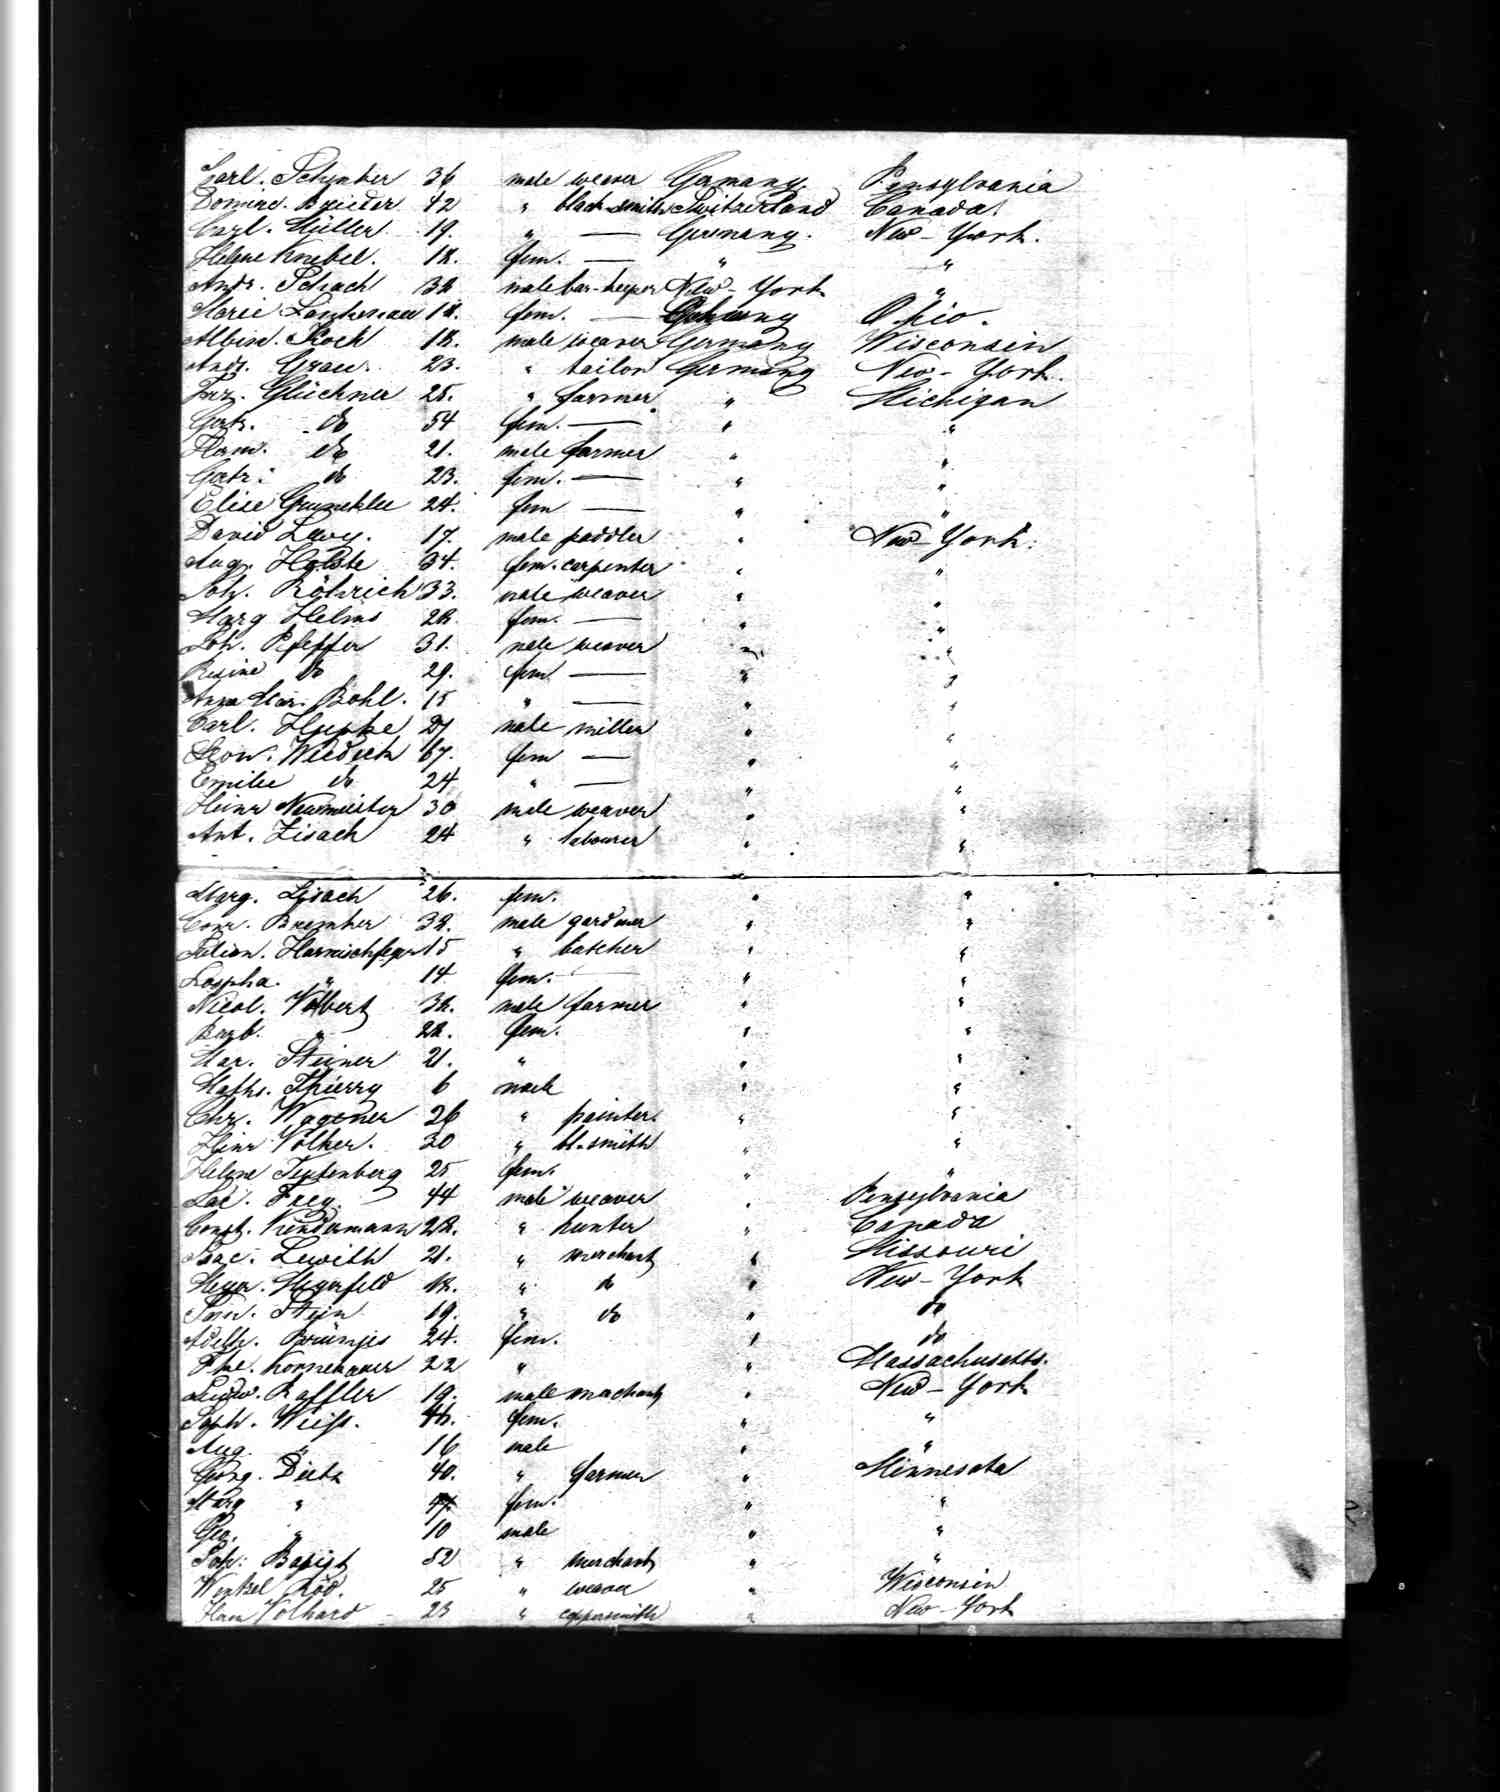 Carl. Schenker 36 male weaver Germany. Pensylvania
Domine. 42 " black-smith Switzerland Canada.
Carl. Müller 19. " — Germany. New-York.
Helene Knebel. 18. fem. — " "
Andr. Schach 32 male bar-keeper New-York "
Marie 18. fem. — Ohio.
Albin. Koch 18. male weaver Germany Wisconsin
Andr. Grau. 23. " tailor Germany New-York.
Frz. Glückner 25. " farmer " Michigan
Gertr. do 54 fem. — " "
Herm. do 21. male farmer " "
Gertr. do 23. fem. — " "
Elise 24. fem — " "
David Levy. 17. male paddler " New-York.
Aug. Holste 34. fem. carpenter " "
Joh. Röhrich 33. male weaver " "
Marg Helms 28. fem. — " "
Joh. Pfeffer 31. male weaver " "
Regine do 29. fem — " "
Anna Mar. Bohl. 15 " — " "
Carl. Hupke 27 male miller " "
67. fem — " "
Emilie do 24 " — " "
Heinr Neumeister 30 male weaver " "
Ant. Zisach 24 " labourer " "
Marg. Zisach 26. fem. " "
Conr. 32. male gardner " "
Julian. Harnischfeger 15 " butcher " "
" 14 fem. — " "
Nicol. Volbert 32. male farmer " "
Barb. " 22. fem. " "
Mar. Steiner 21. " " "
Maths. Thierry 6 male " "
Chr. Wagener 26 " painter. " "
Heinr Völker. 30 " bl.smith " "
Helene Teutenberg 25 fem. " "
Frey 44 male weaver " Pensylvania
Const. Kindermann 28. " hunter " Canada
Isac. Lewith 21. " merchant " Missouri
Meyer. Heynfeld 18. " do " New-York
Stein 19. " do " do
Adelh. Brünjes 24. fem. " do
22 " " Massachusetts.
Ludw. Raffler 19. male merchant " New-York
Soph. Weiss. 46. fem. " "
Aug. " 16 male " "
Georg. Dietz 40. " farmer " Minnesota
Marg " 47. fem. " "
Geo. " 10 male " "
Joh. 52 " merchant " "
Wenzel Röd. 25 " weaver " Wisconsin
Herm Volhard 23 " coppersmith " New-York